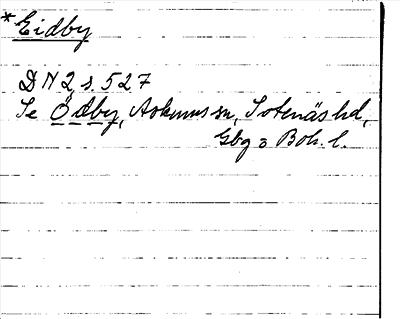 *Eidby
DN 2, s. 527
Se Ödby, Askums sn, Sotenäs hd,
Gbg o Boh. l.